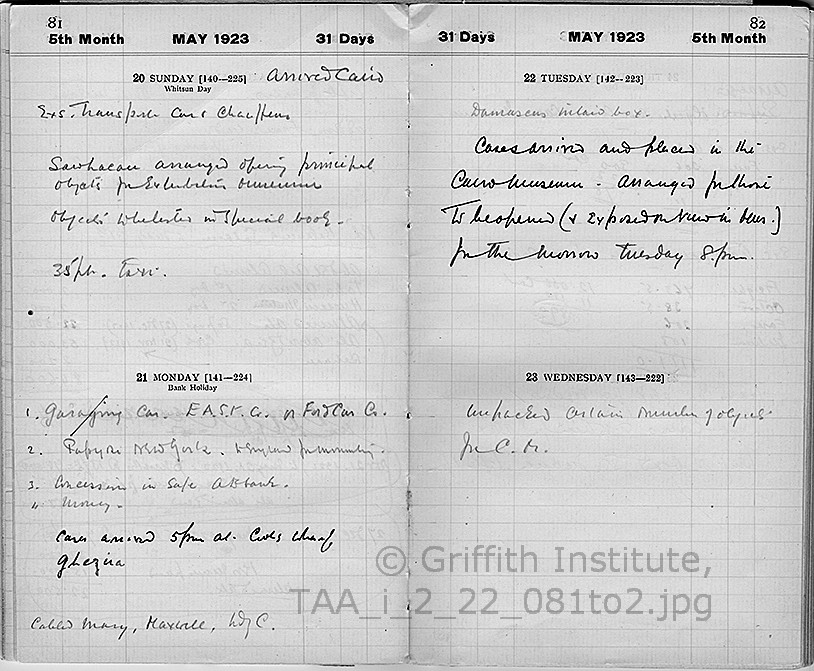 81
5th Month MAY 1923 31 Days
20 SUNDAY [140—225] Arrived Cairo
Whitsun Day
Exs. Transport Cars Chauffeur
Saw Lacau arranged opening principal
objects for Exhibition museum
objects listed in special book.
35 pt. Taxi.
21 MONDAY [141—224]
Bank Holiday
1. Garaging Car. E.A.S.T. Co. or Ford Car Co.
2. Papyri New York. to England for mounting.
3. Concession in safe at bank.
" Money.
Cases arrived 5 pm at Cooks Wharf
Ghezira
Cabled Mary, Maxwell, Ldy C.
82
31 Days MAY 1923 5th Month
22 TUESDAY [142—223]
Damascus inlaid box.
Cases arrived and placed in the
Cairo Museum - arranged for those
to be opened (& exposed on view in )
for the morrow Tuesday 8. pm.
23 WEDNESDAY [143—222]
unpacked certain number of objects
for C. M.
© Griffith Institute,
TAA_i_2_22_081to2.jpg